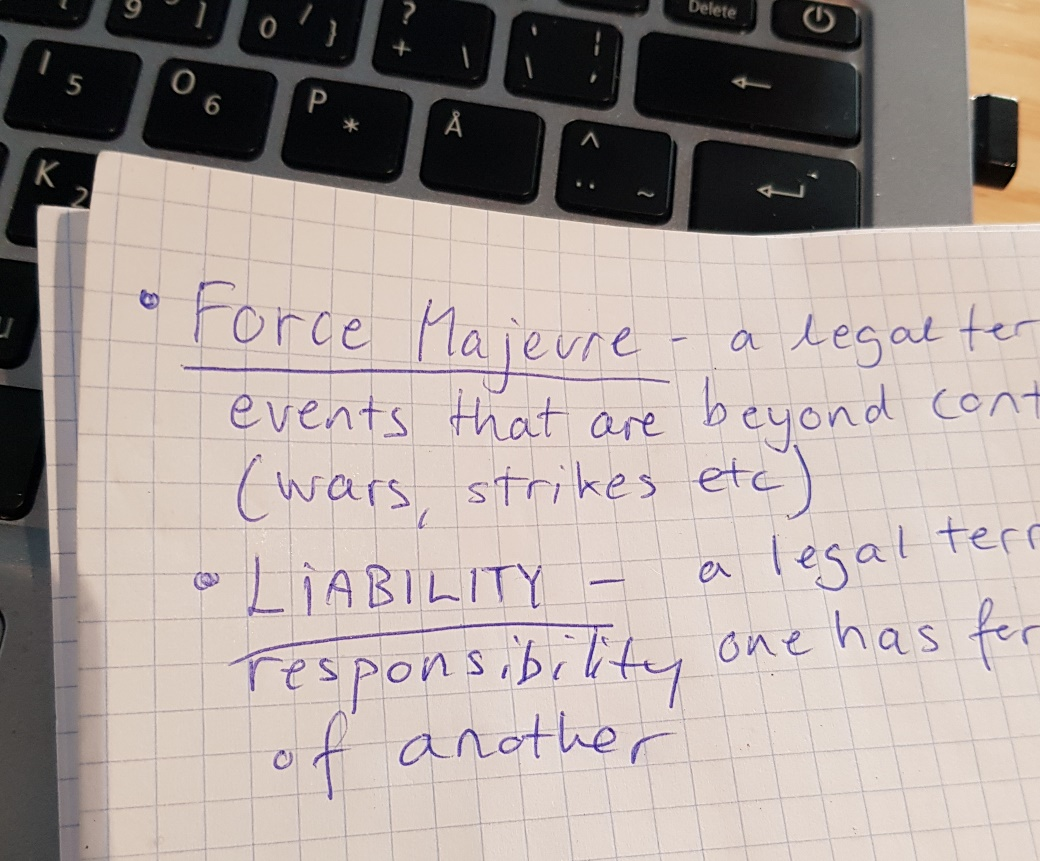 9 )
0 / }
? + \
Delete
I 5
O 6
P *
Å
^ .. ~
K 2
u
• Force Majeure - a legal ter
events that are beyond cont
(wars, strikes etc)
• LiABILITY - a legal terr
responsibility one has for
of another